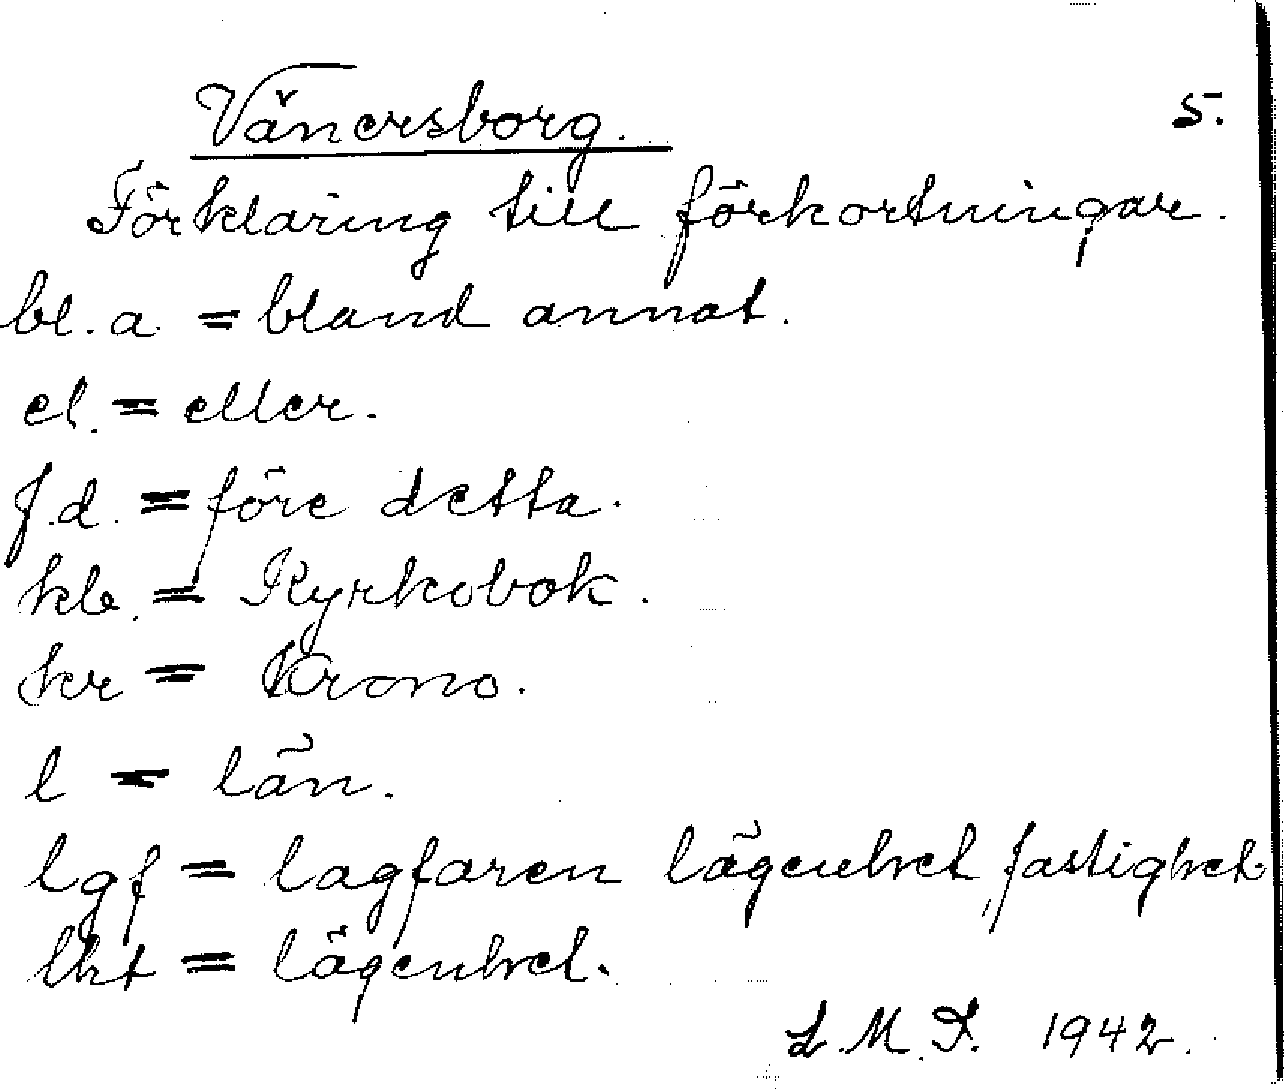 Vänersborg. 5.
Förklaring till förkortningar.
bl. a. = bland annat.
el. = eller.
f.d. = före detta.
kb. = Kyrkobok.
kr = Krono.
l = län.
lgf = lagfaren lägenhet, fastighet
lht = lägenhet.
L.M.F. 1942.